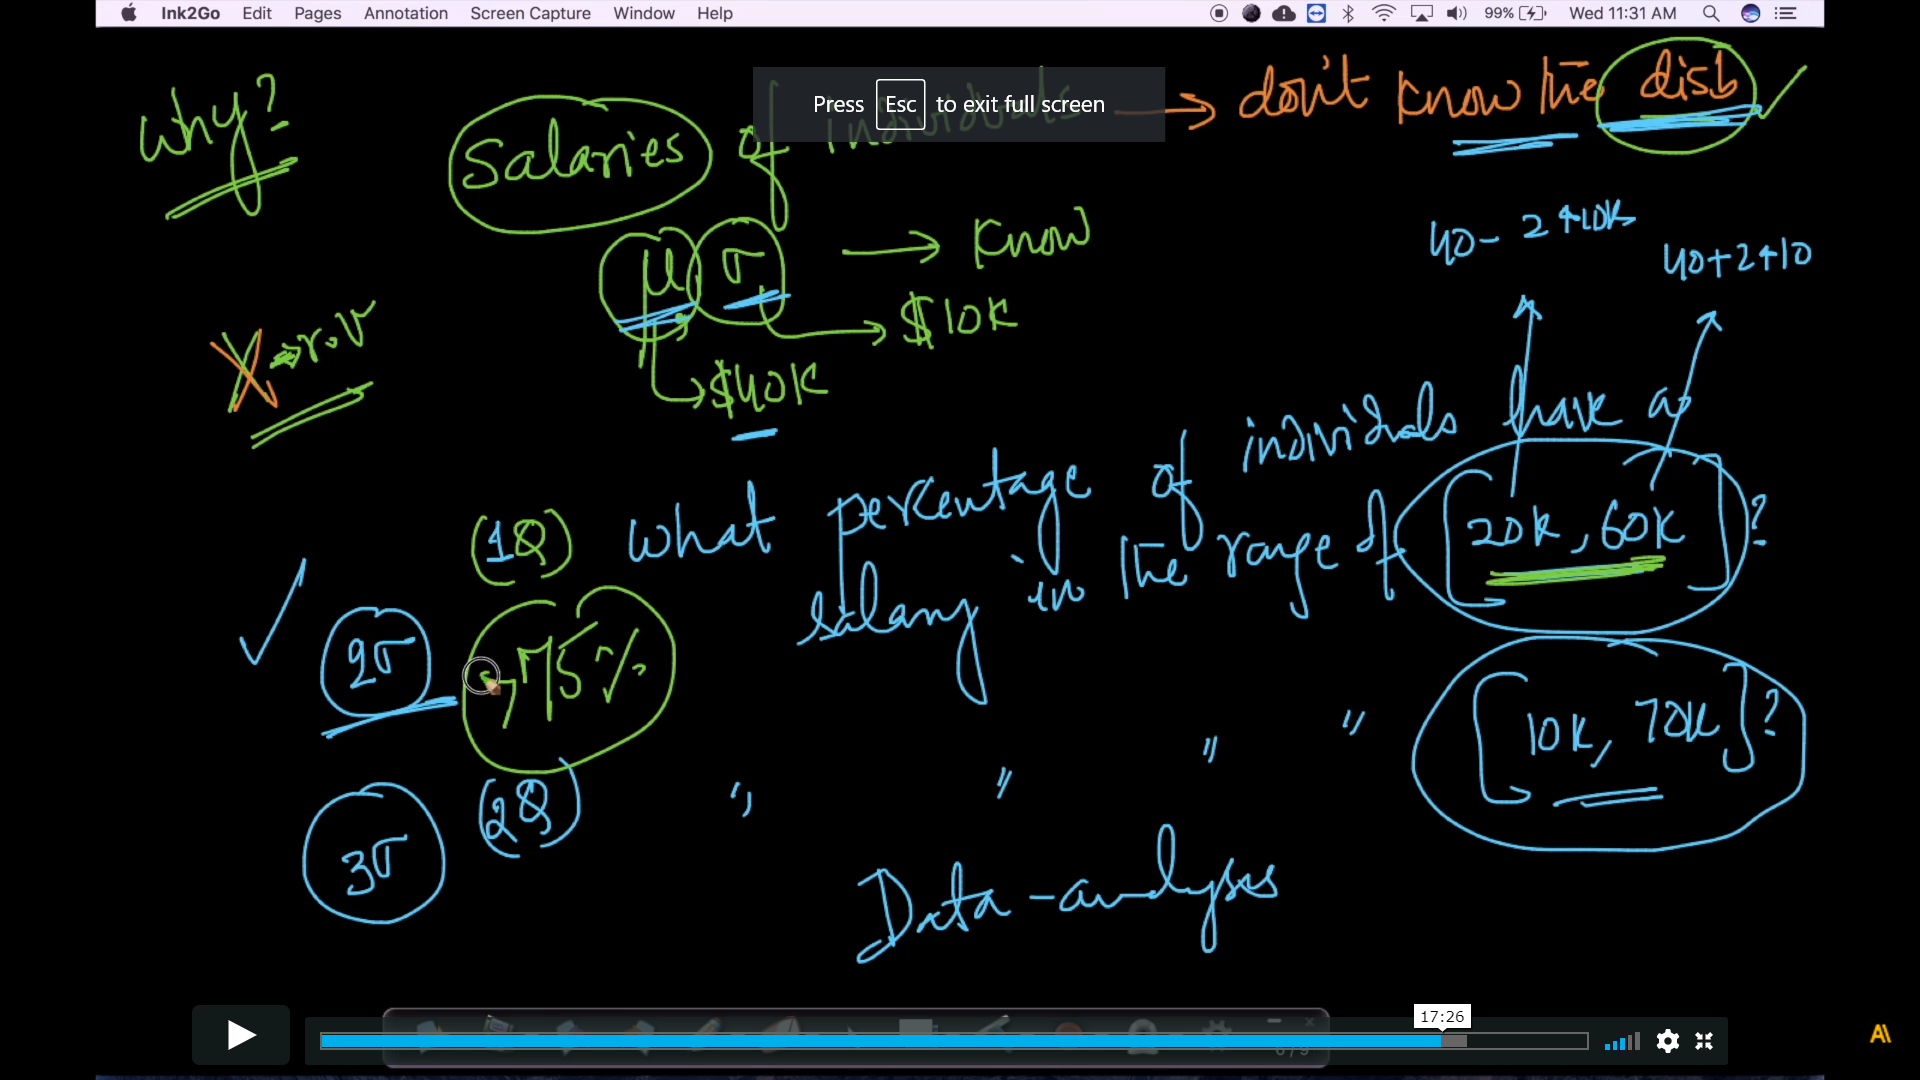 Ink2Go Edit Pages Annotation Screen Capture Window Help 99% Wed 11:31 AM
Press Esc to exit full screen
Why? Salaries of individuals → don't know the disb ✓
μ σ → know
40 - 2*10k
40+2*10
X → r.v
$10K
$40K
(1Q) What percentage of individuals have a
salary in the range of [20k, 60k]?
✓ 2σ >75%
(2Q) " " " " [10k, 70k]?
3σ
Data-analysis
17:26